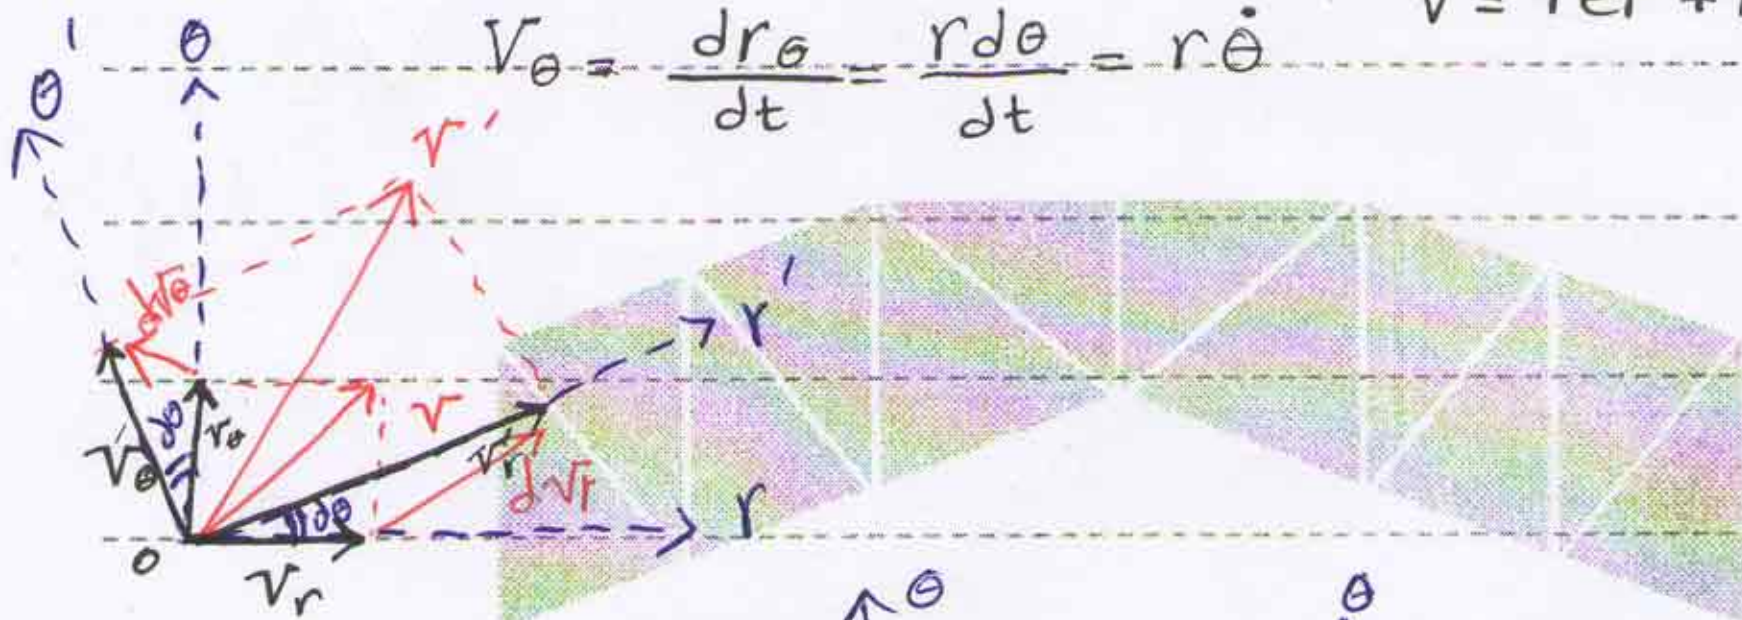 V_θ = dr_θ/dt = rdθ/dt = rθ̇
θ' θ
V'
dV_θ
r'
V
V'_θ dθ V_θ V'_r dV_r
dθ r
O V_r
θ θ